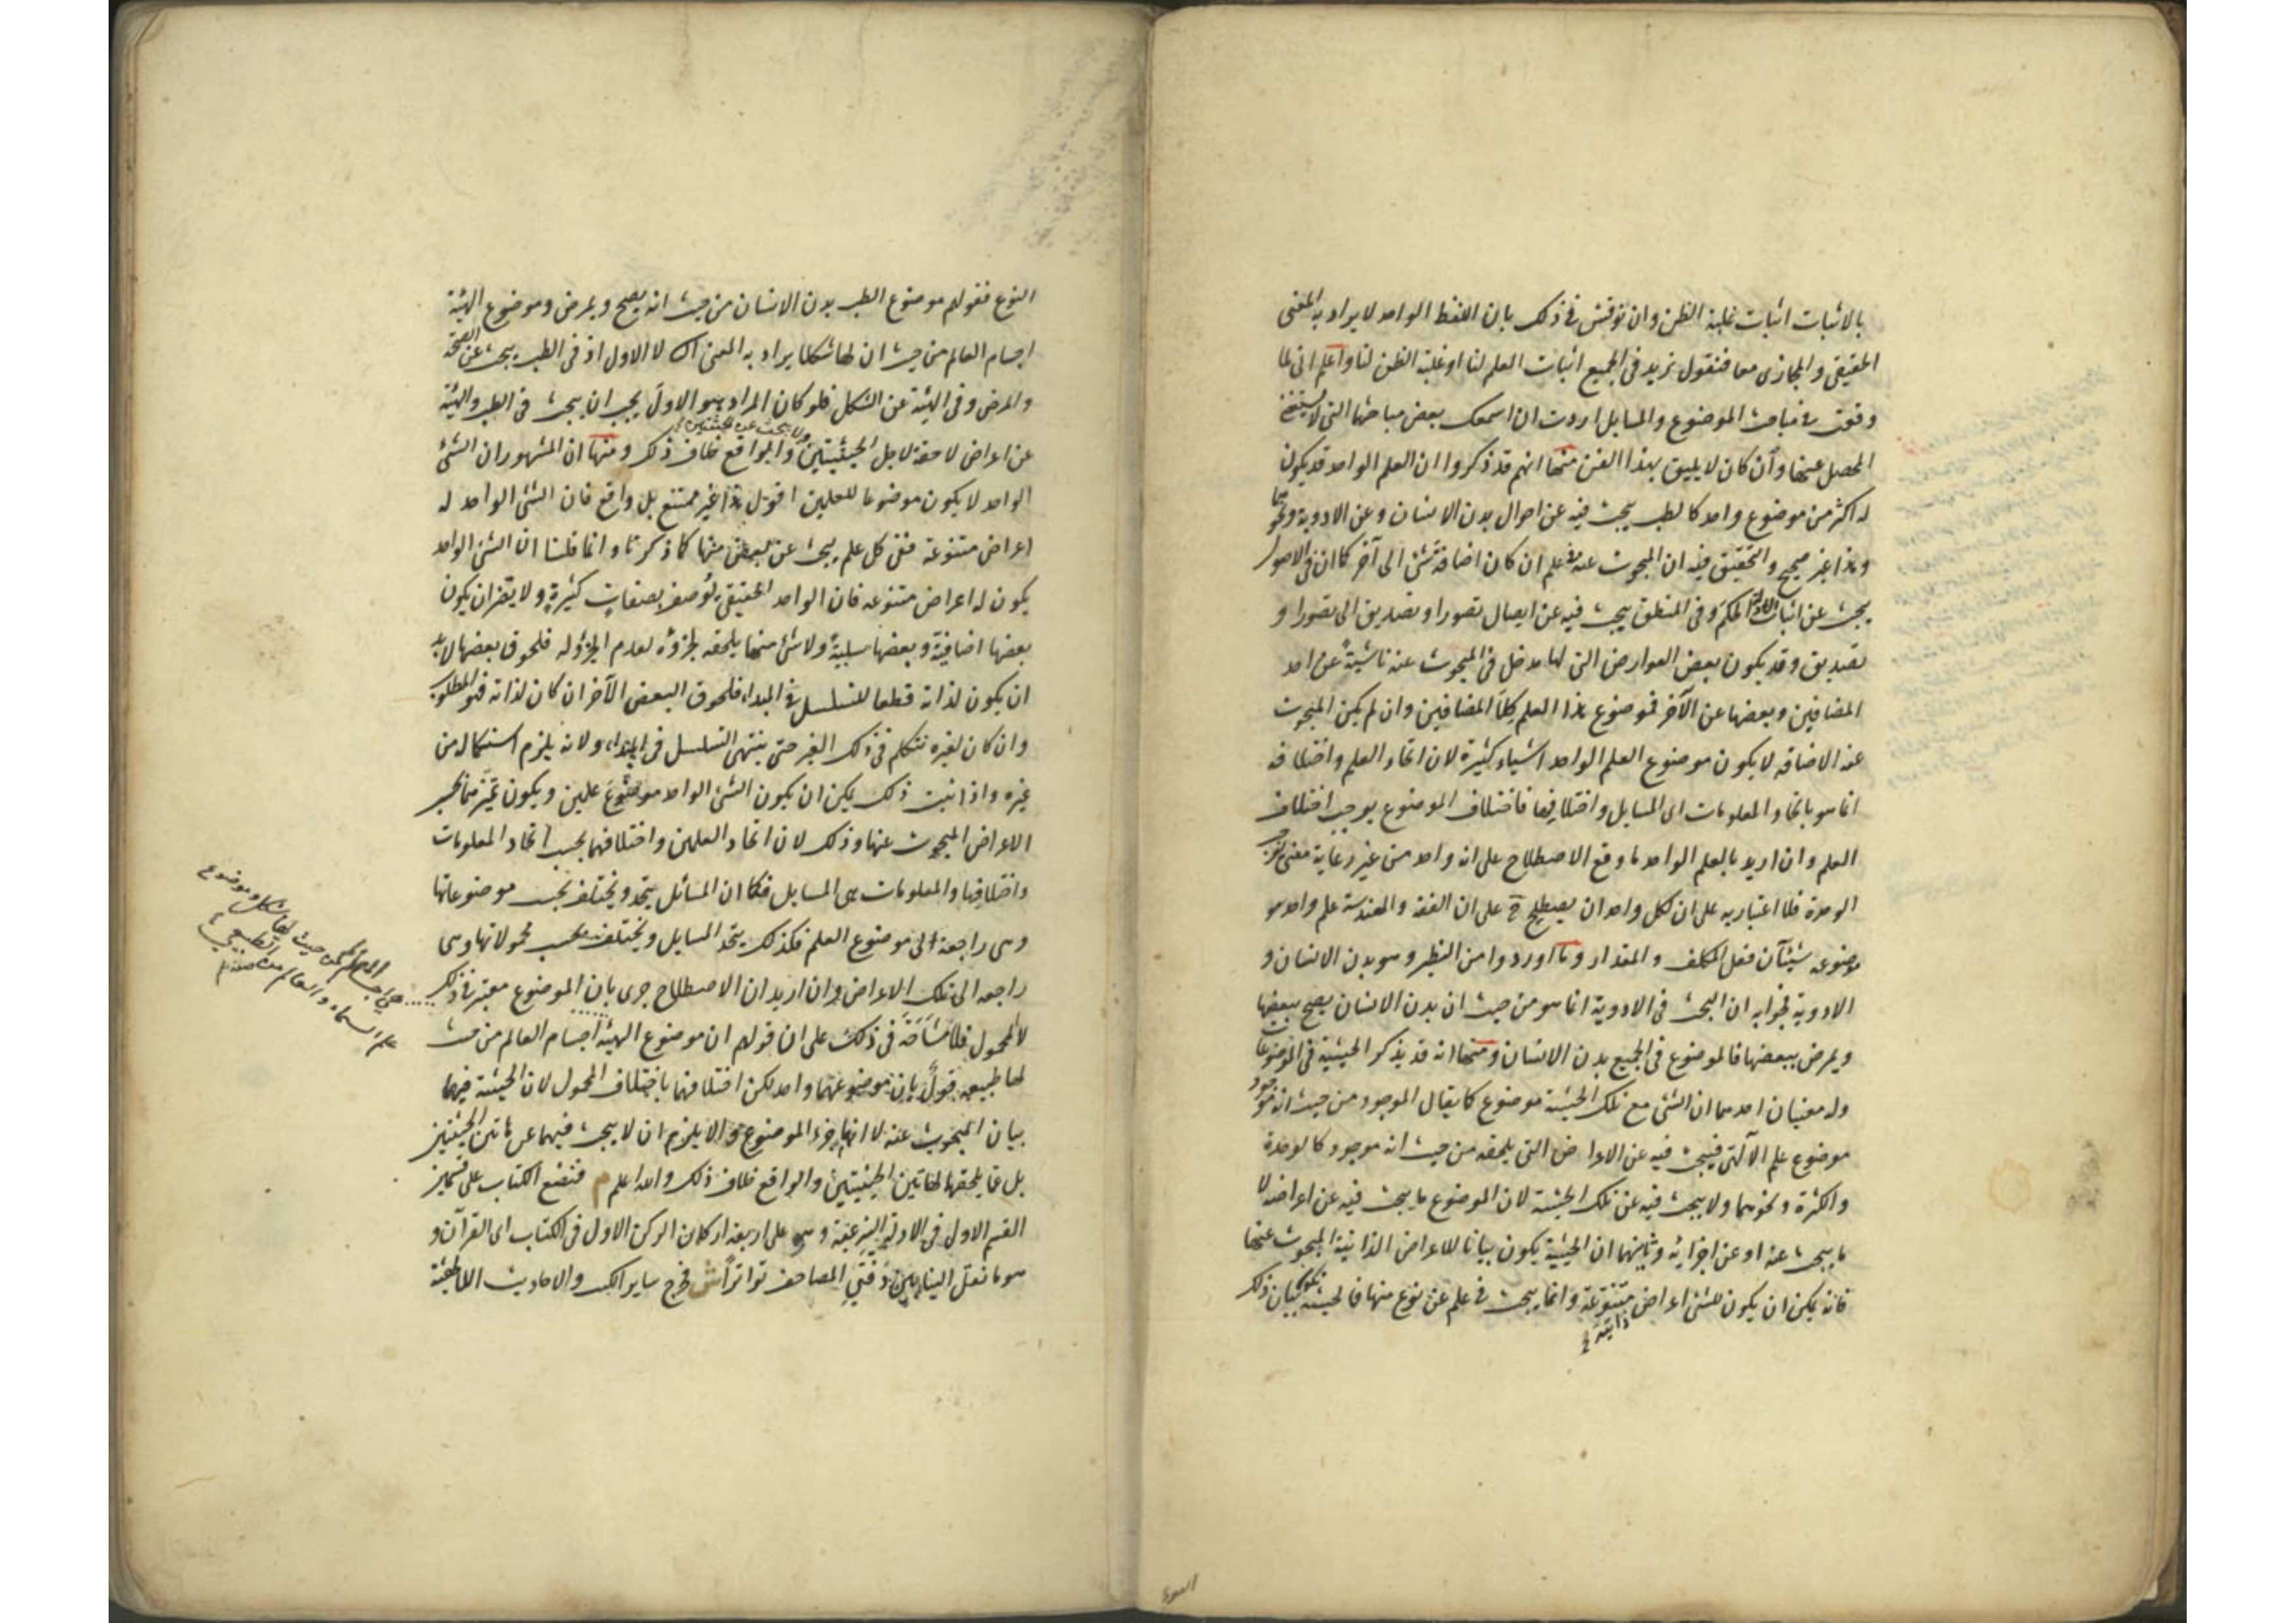 بالاثبات اثبات غلبة الظن وان نوقش فى ذلك بان اللفظ الواحد لا يراد به المعنى
الحقيقى والمجازى معا فنقول نريد فى الجميع اثبات العلم لنا او غلبة الظن لنا واعلم انى لما
وقعت فى مباحث الموضوع والمسايل اردت ان اسمعك بعض مباحثها التى لا يستغنى
المحصل عنها وان كان لا يليق بهذا الفن منها انهم قد ذكروا ان العلم الواحد قد يكون
له اكثر من موضوع واحد كالطب يبحث فيه عن احوال بدن الانسان وعن الادوية ونحوها
وهذا غير صحيح والتحقيق فيه ان المبحوث عنه فى علم ان كان اضافة شئ الى آخر كما ان فى الاصول
يبحث عن اثبات الادلة الحكم وفى المنطق يبحث فيه عن ايصال تصور او تصديق الى تصور او
تصديق وقد يكون بعض العوارض التى لها مدخل فى المبحوث عنه ناشية عن احد
المضافين وبعضها عن الآخر فموضوع هذا العلم كلا المضافين وان لم يكن المبحوث
عنه الاضافة لا يكون موضوع العلم الواحد اشياء كثيرة لان اتحاد العلم واختلافه
انما هو باتحاد المعلومات اى المسايل واختلافها فاختلاف الموضوع يوجب اختلاف
العلم وان اريد بالعلم الواحد ما وقع الاصطلاح على انه واحد من غير رعاية معنى يوجب
الوحدة فلا اعتبار به على ان لكل واحد ان يصطلح ح على ان الفقه والهندسة علم واحد و
موضوعه شيئآن فعل المكلف والمقدار وما اوردوا من النظير وهو بدن الانسان و
الادوية فجوابه ان البحث فى الادوية انما هو من حيث ان بدن الانسان يصح ببعضها
ويمرض ببعضها فالموضوع فى الجميع بدن الانسان ومنها انه قد يذكر الحيثية فى الموضوعات
وله معنيان احدهما ان الشئ مع تلك الحيثية موضوع كما يقال الموجود من حيث انه موجود
موضوع علم الآلهى فيبحث فيه عن الاعراض التى يلحقه من حيث انه موجود كالوحدة
والكثرة ونحوهما ولا يبحث فيه عن تلك الحيثية لان الموضوع ما يبحث فيه عن اعراضه لا
ما يبحث عنه او عن اجزائه وثانيهما ان الحيثية يكون بيانا للاعراض الذاتية المبحوث عنها
فانه يمكن ان يكون للشئ اعراض متنوعة وانما يبحث فى علم عن نوع منها فالحيثية تكون بيان ذلك
ذاتية
النوع فقولهم موضوع الطب بدن الانسان من حيث انه يصح ويمرض وموضوع الهيئة
اجسام العالم من حيث ان لها شكلا يراد به المعنى الثا لا الاول اذ فى الطب يبحث عن الصحة
والمرض وفى الهيئة عن الشكل فلو كان المراد هو الاول يجب ان يبحث فى الطب والهيئة
ولا يبحث عن الحيثيتين
عن اعراض لاحقة لاجل الحيثيتين والواقع خلاف ذلك ومنها ان المشهور ان الشئ
الواحد لا يكون موضوعا للعلمين اقول هذا غير ممتنع بل واقع فان الشئ الواحد له
اعراض متنوعة ففى كل علم يبحث عن بعض منها كما ذكرنا وانما قلنا ان الشئ الواحد
يكون له اعراض متنوعه فان الواحد الحقيقى يوصف بصفات كثيرة ولا يضر ان يكون
بعضها اضافية وبعضها سلبية ولا شئ منها يلحقه لجزؤه لعدم الجزؤ له فلحوق بعضها لا بد
ان يكون لذاته قطعا للتسلسل فى المبداء فلحوق البعض الآخر ان كان لذاته فهو المطلوب
وان كان لغيره نتكلم فى ذلك الغير حتى ينتهى التسلسل فى المبداء ولانه يلزم استكماله من
غيره واذا ثبت ذلك يمكن ان يكون الشئ الواحد موضوع علمين ويكون تميزهما بحسب
الاعراض المبحوث عنها وذلك لان اتحاد العلمين واختلافهما بحسب اتحاد المعلومات
واختلافها والمعلومات هى المسايل فكما ان المسائل يتحد ويختلف بحسب موضوعاتها
وهى راجعة الى موضوع العلم فكذلك يتحد المسايل ويختلف بحسب محمولاتها وهى
راجعه الى تلك الاعراض وان اريد ان الاصطلاح جرى بان الموضوع معتبر فى ذلك
لا المحمول فلا مشاحة فى ذلك على ان قولهم ان موضوع الهيئة اجسام العالم من حيث
لها طبيعه قول بان موضوعهما واحد لكن اختلافهما باختلاف المحمول لان الحيثية فيهما
بيان المبحوث عنه لا انها جزء الموضوع والا يلزم ان لا يبحث فيهما عن هاتين الحيثيتين
بل عما يلحقها لهاتين الحيثيتين والواقع خلاف ذلك والله اعلم م فنضع الكتاب على قسمين
القسم الاول فى الادلة الشرعية وهى على اربعة اركان الركن الاول فى الكتاب اى القرآن و
هو ما نقل الينا بين دفتى المصاحف تواترا ش فخرج ساير الكتب والاحاديث الالهية